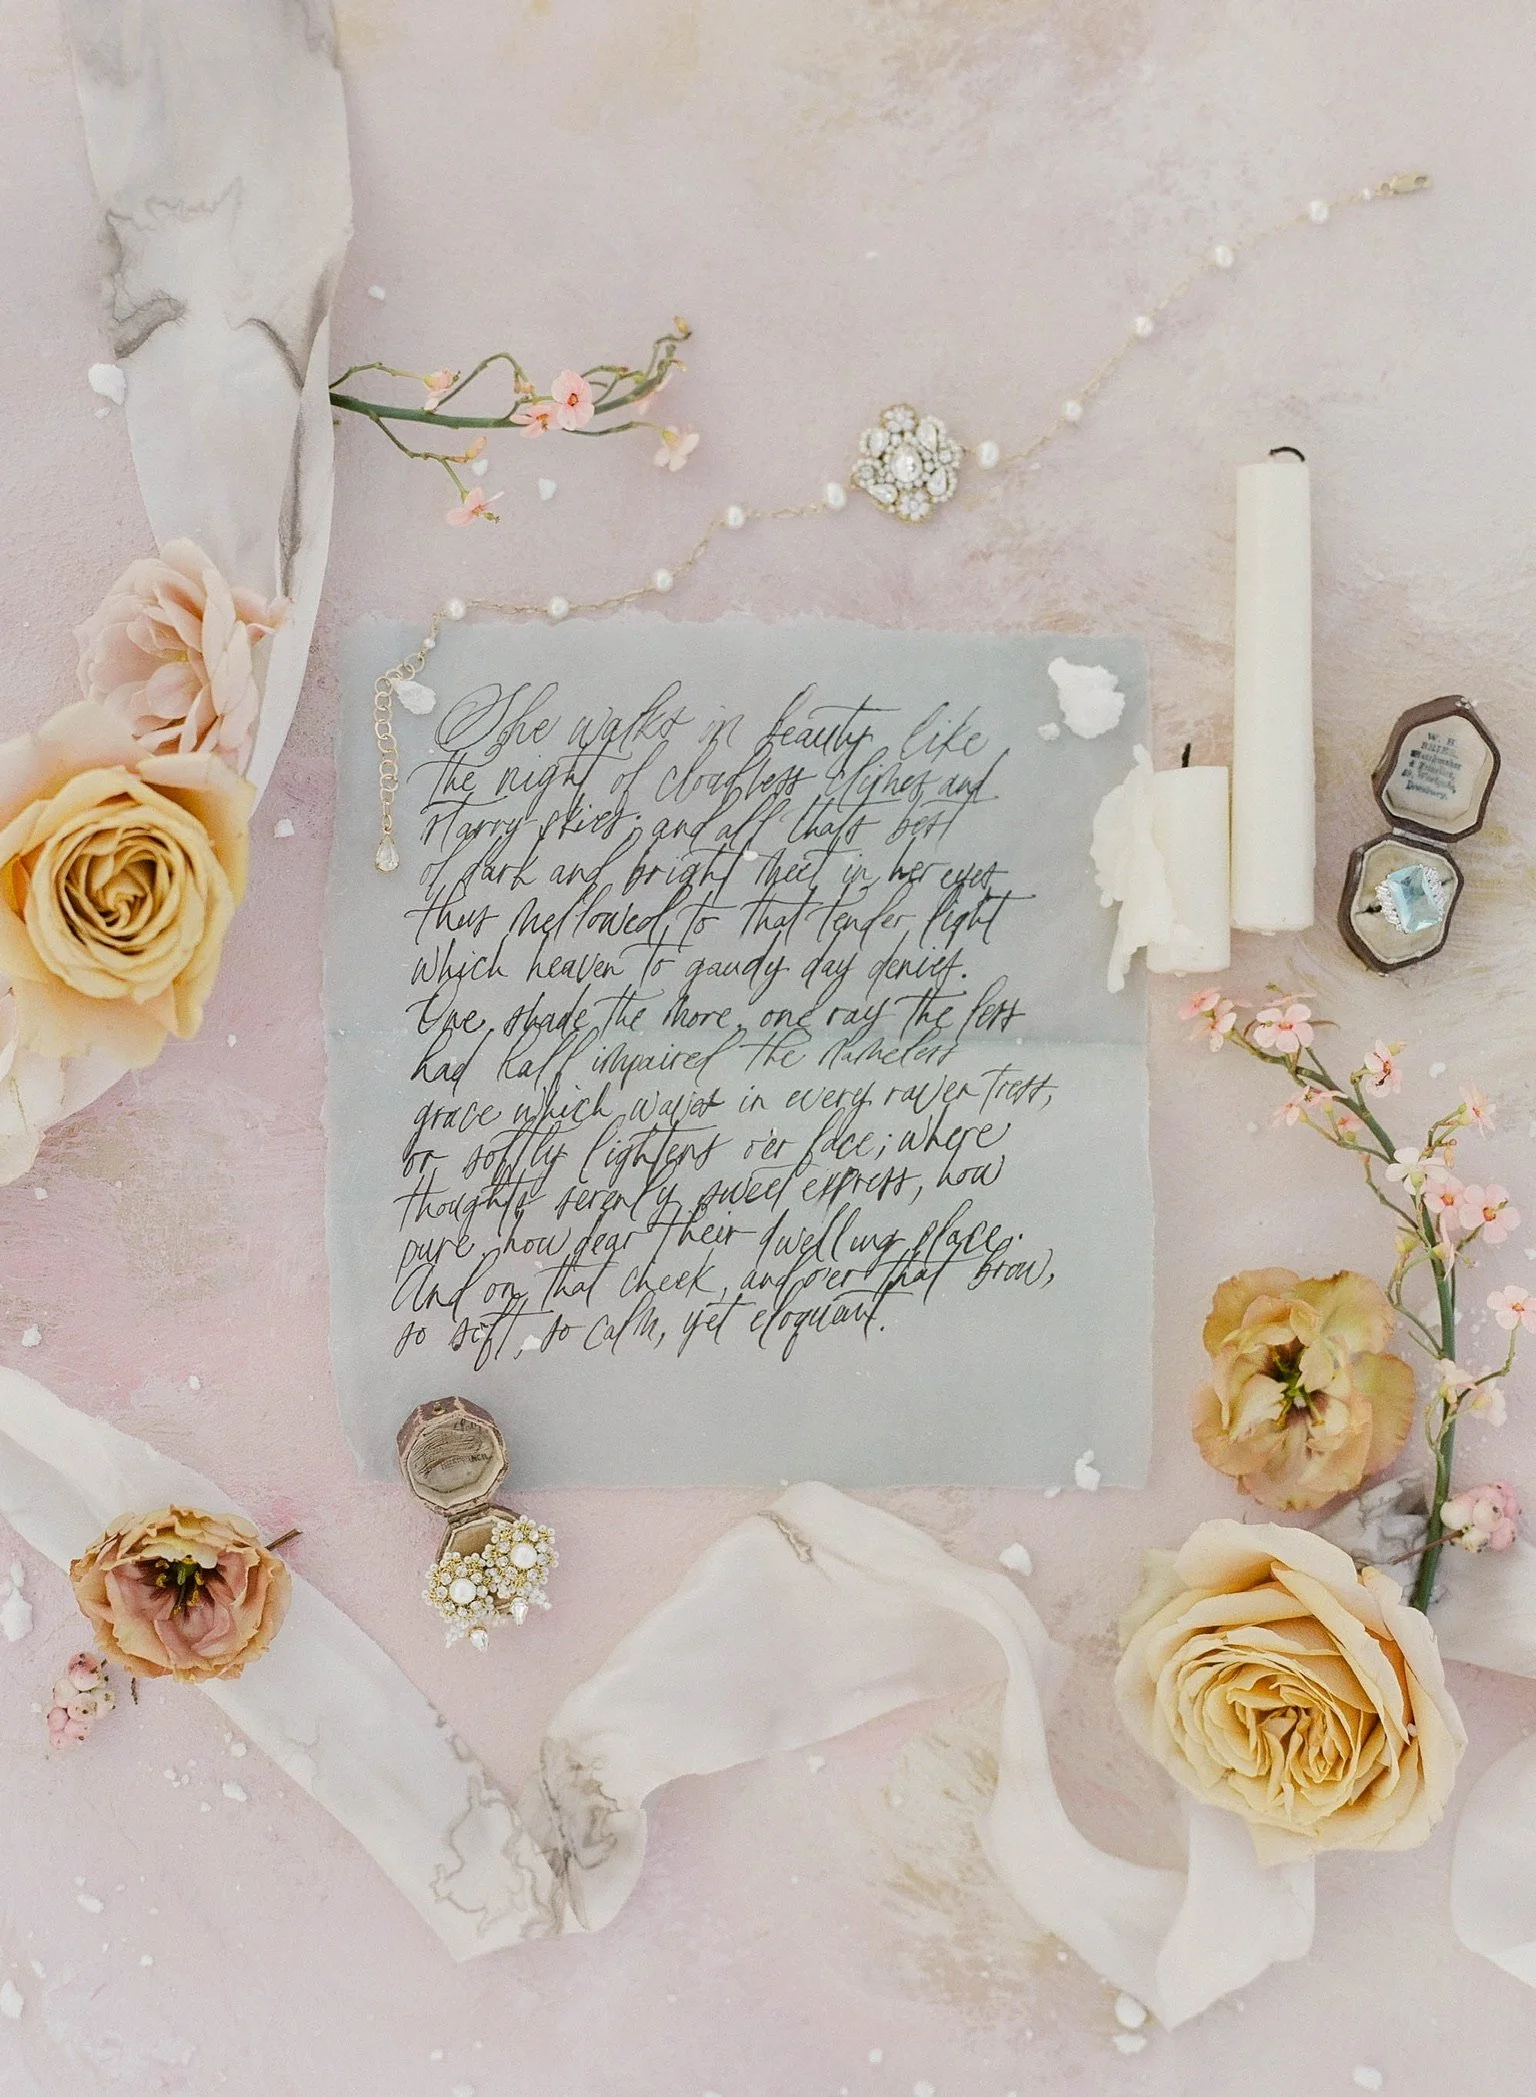 She walks in beauty like
the night of cloudless climes and
starry skies; and all thats best
of dark and bright meet in her eyes
thus mellowed to that tender light
which heaven to gaudy day denies.
One shade the more, one ray the less
had half impaired the nameless
grace which waves in every raven tress,
or softly lightens o'er face; where
thoughts serenely sweet express, how
pure, how dear their dwelling place.
And on that cheek, and o'er that brow,
so soft, so calm, yet eloquent.
W. H.